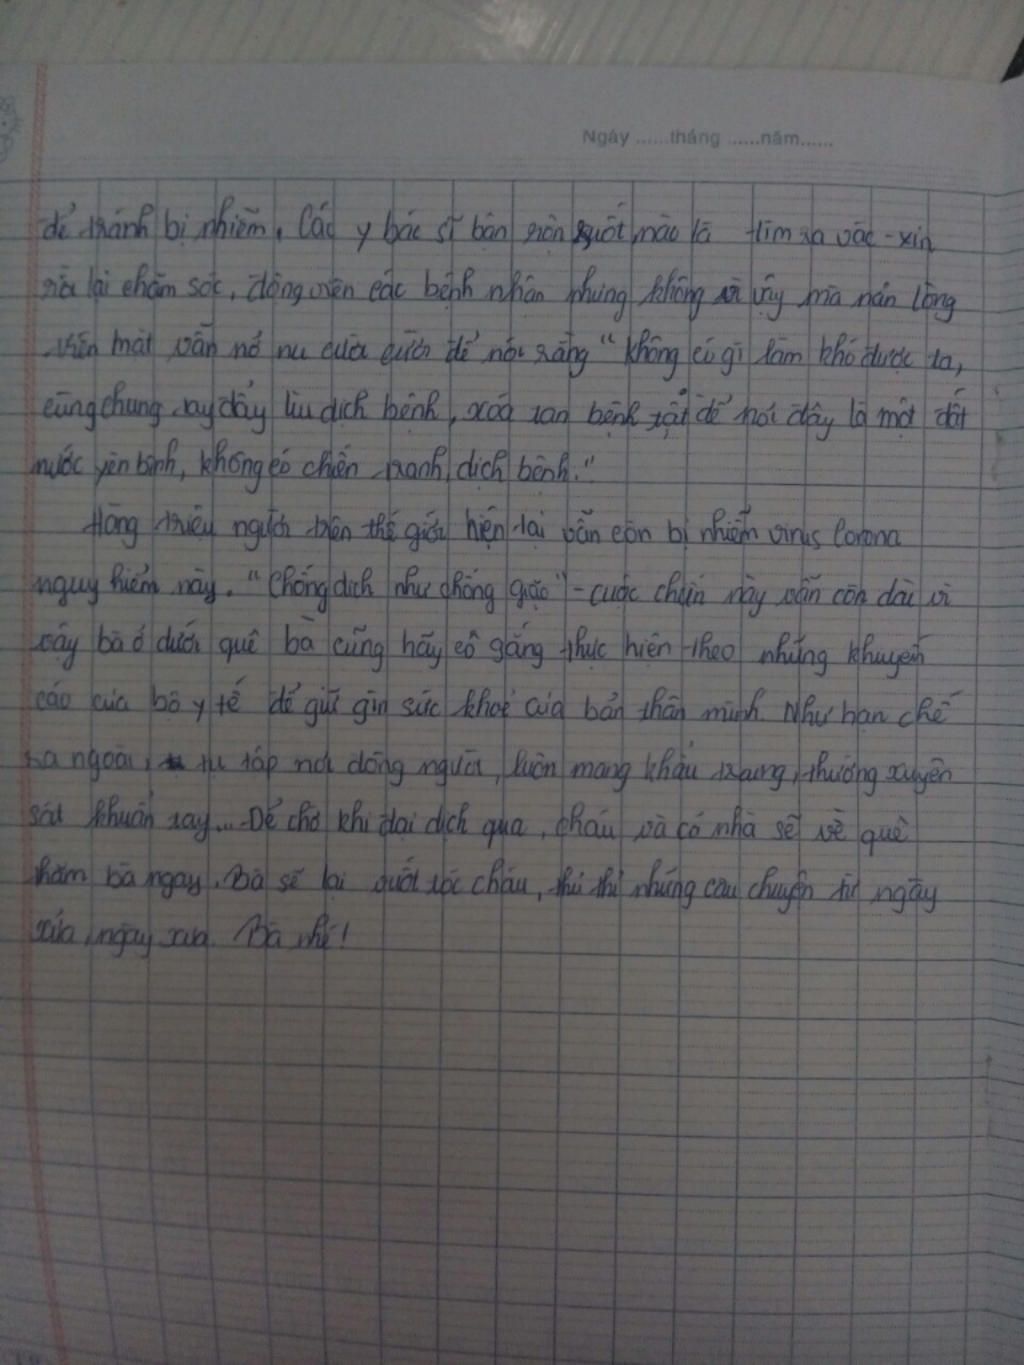 Ngày ......tháng ......năm......
để tránh bị nhiễm. Các y bác sĩ bận rộn suốt, nào là tìm ra vắc-xin
rồi lại chăm sóc, động viên các bệnh nhân nhưng không vì vậy mà nản lòng
trên mặt vẫn nở nụ cười để nói rằng "không có gì làm khó được ta,
cùng chung tay đẩy lùi dịch bệnh, xoá tan bệnh tật để nơi đây là một đất
nước yên bình, không có chiến tranh, dịch bệnh."
Hàng triệu người trên thế giới hiện tại vẫn còn bị nhiễm virus Corona
nguy hiểm này. "Chống dịch như chống giặc" - cuộc chiến này vẫn còn dài vì
vậy bà ở dưới quê bà cũng hãy cố gắng thực hiện theo những khuyến
cáo của bộ y tế để giữ gìn sức khoẻ của bản thân mình. Như hạn chế
ra ngoài, tụ tập nơi đông người, luôn mang khẩu trang, thường xuyên
sát khuẩn tay... Để chờ khi đại dịch qua, cháu và cả nhà sẽ về quê
thăm bà ngay. Bà sẽ lại vuốt tóc cháu, thủ thỉ những câu chuyện từ ngày
xửa, ngày xưa. Bà nhé!